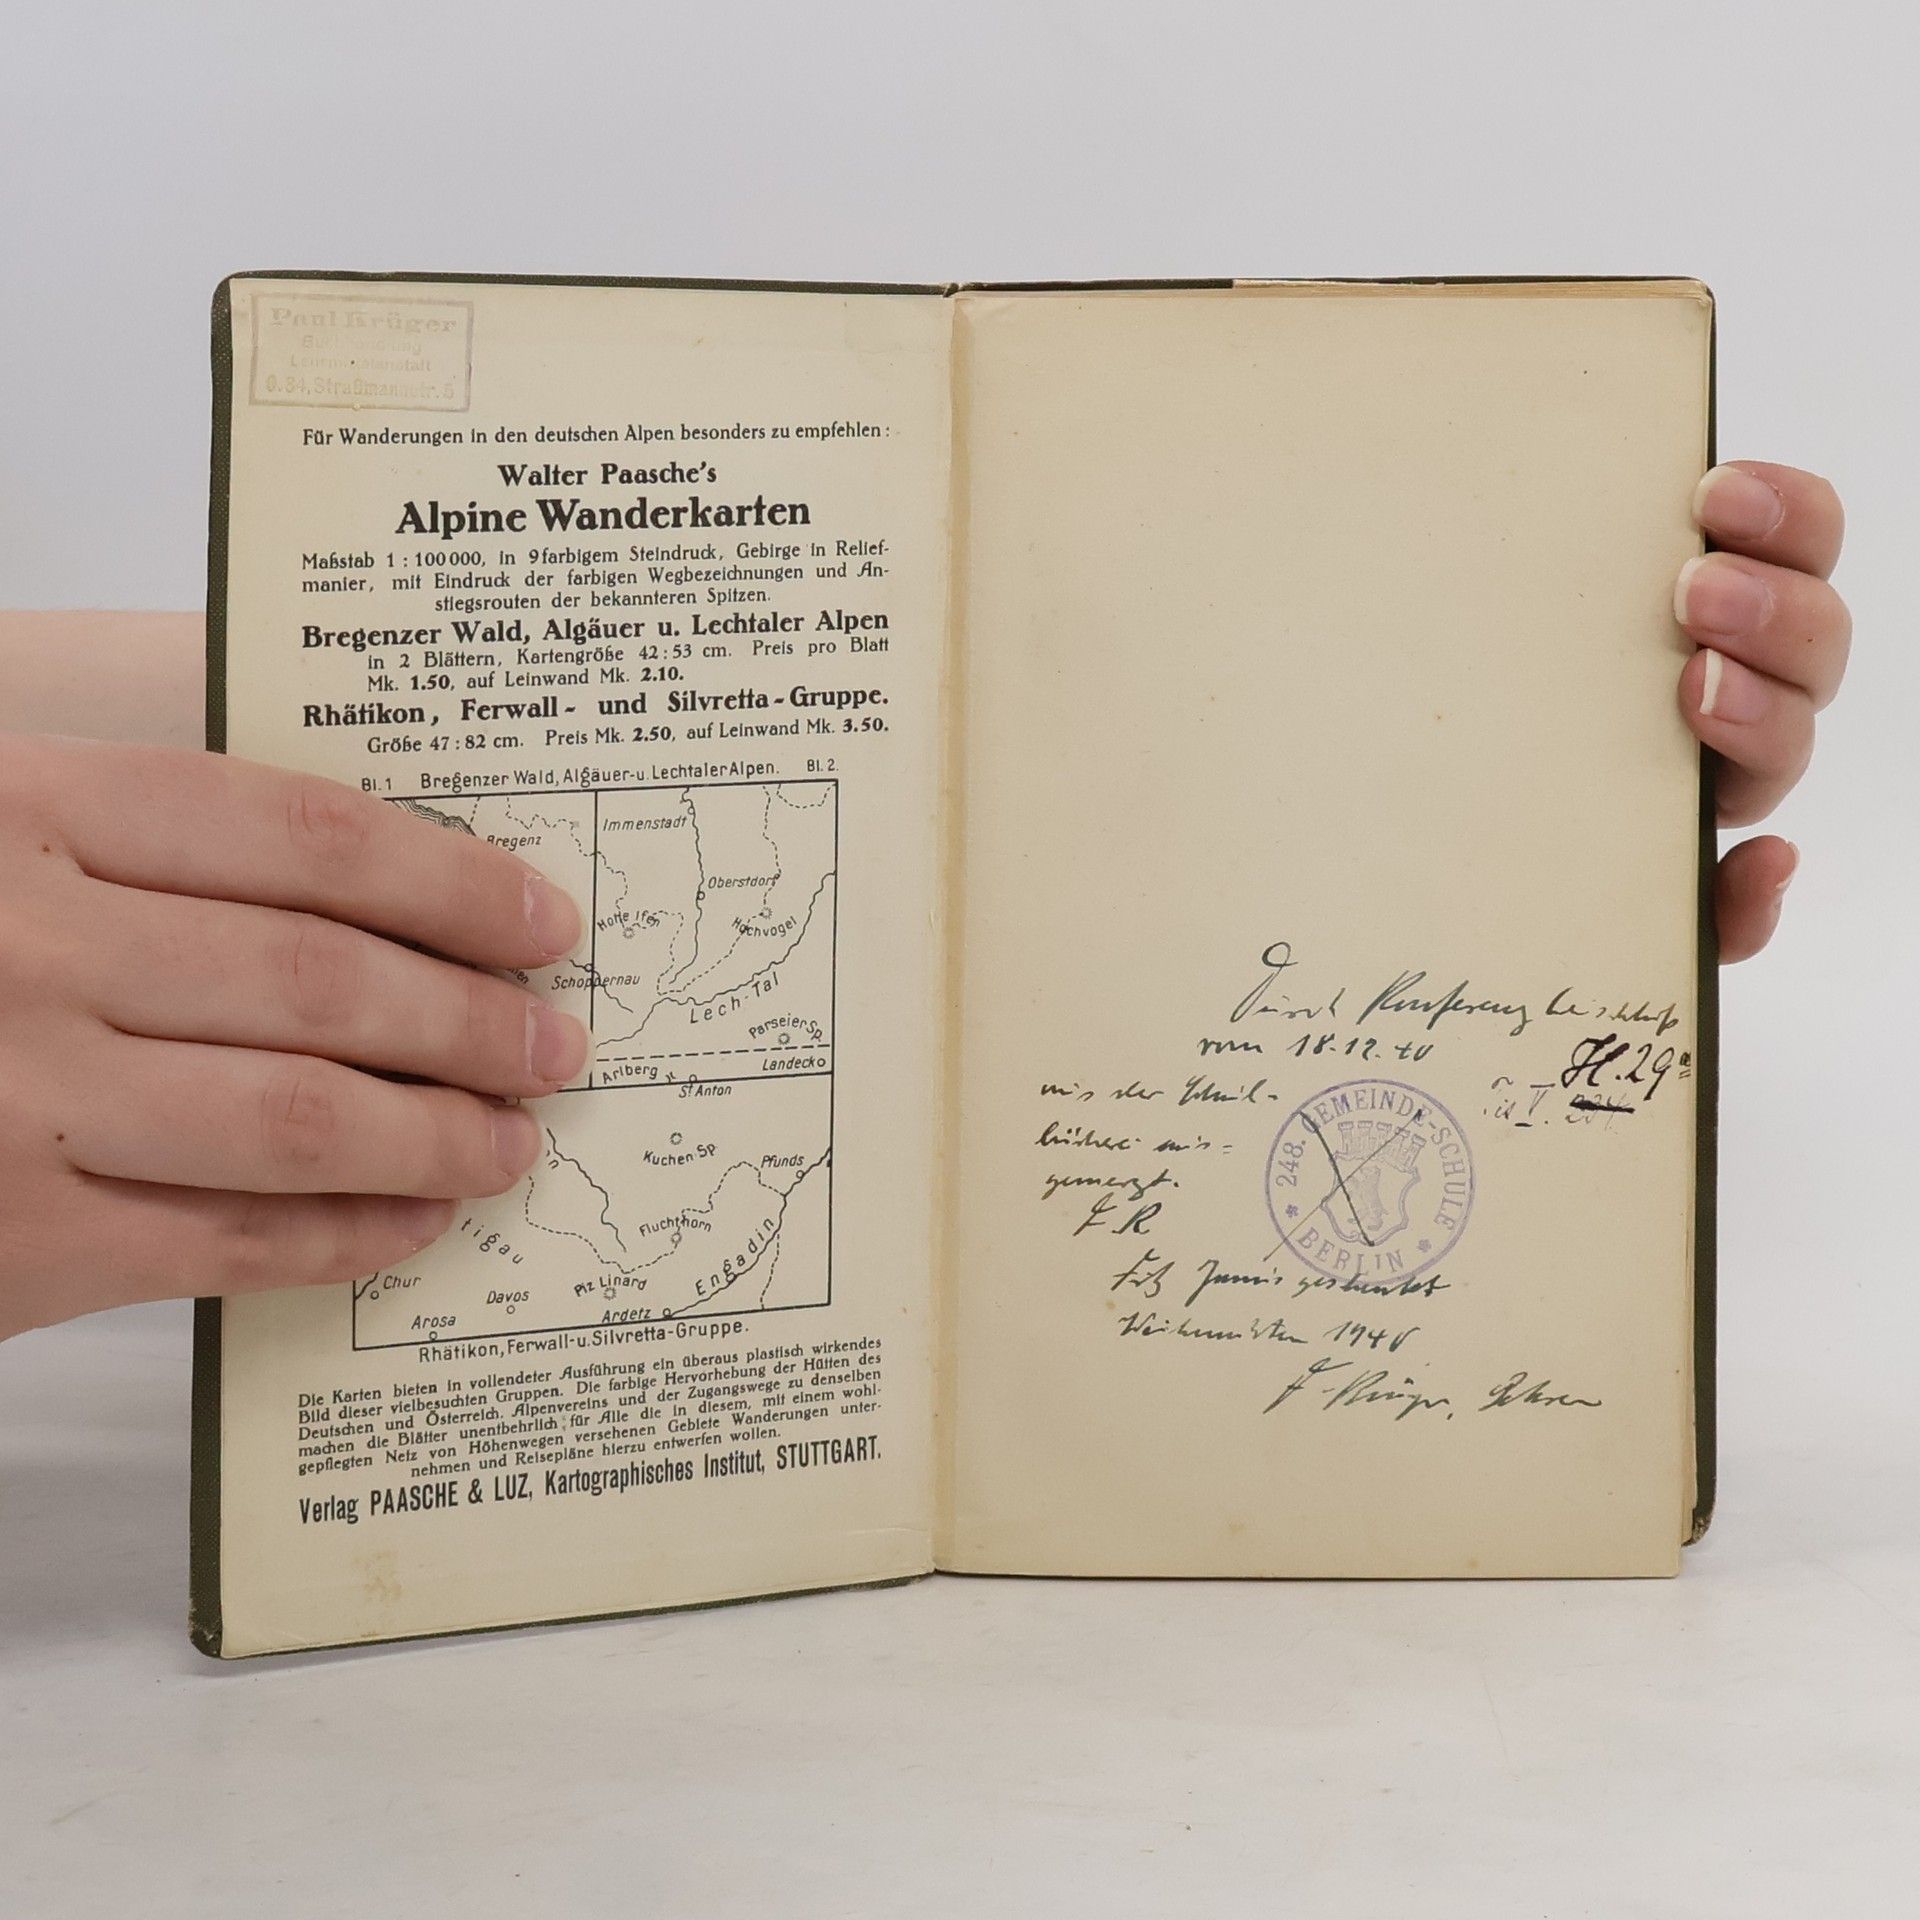 Paul Krüger
Buchhandlung
Lehrmittelanstalt
O.34, Straßmannstr. 5
Für Wanderungen in den deutschen Alpen besonders zu empfehlen:
Walter Paasche's
Alpine Wanderkarten
Maßstab 1 : 100 000, in 9 farbigem Steindruck, Gebirge in Relief-
manier, mit Eindruck der farbigen Wegbezeichnungen und An-
stiegsrouten der bekannteren Spitzen.
Bregenzer Wald, Algäuer u. Lechtaler Alpen
in 2 Blättern, Kartengröße 42 : 53 cm. Preis pro Blatt
Mk. 1.50, auf Leinwand Mk. 2.10.
Rhätikon, Ferwall- und Silvretta-Gruppe.
Größe 47 : 82 cm. Preis Mk. 2.50, auf Leinwand Mk. 3.50.
Bl. 1 Bregenzer Wald, Algäuer- u. Lechtaler Alpen. Bl. 2.
Bregenz
Immenstadt
Oberstdorf
Hohe Ifen
Hochvogel
Schoppernau
Lech-Tal
Parseier Sp.
Landeck
Arlberg
St. Anton
Kuchen Sp
Pfunds
Fluchthorn
tigau
Engadin
Chur
Piz Linard
Davos
Ardetz
Arosa
Rhätikon, Ferwall- u. Silvretta-Gruppe.
Die Karten bieten in vollendeter Ausführung ein überaus plastisch wirkendes
Bild dieser vielbesuchten Gruppen. Die farbige Hervorhebung der Hütten des
Deutschen und Österreich. Alpenvereins und der Zugangswege zu denselben
machen die Blätter unentbehrlich für Alle die in diesem, mit einem wohl-
gepflegten Netz von Höhenwegen versehenen Gebiete Wanderungen unter-
nehmen und Reisepläne hierzu entwerfen wollen.
Verlag PAASCHE & LUZ, Kartographisches Institut, STUTTGART.
Durch Konferenzbeschluß
vom 18.12.40
H.29a
aus der Schul-
V. 234
bücherei aus-
gemerzt.
F. R
248. GEMEINDE-SCHULE
BERLIN
geschenkt
Weihnachten 1940